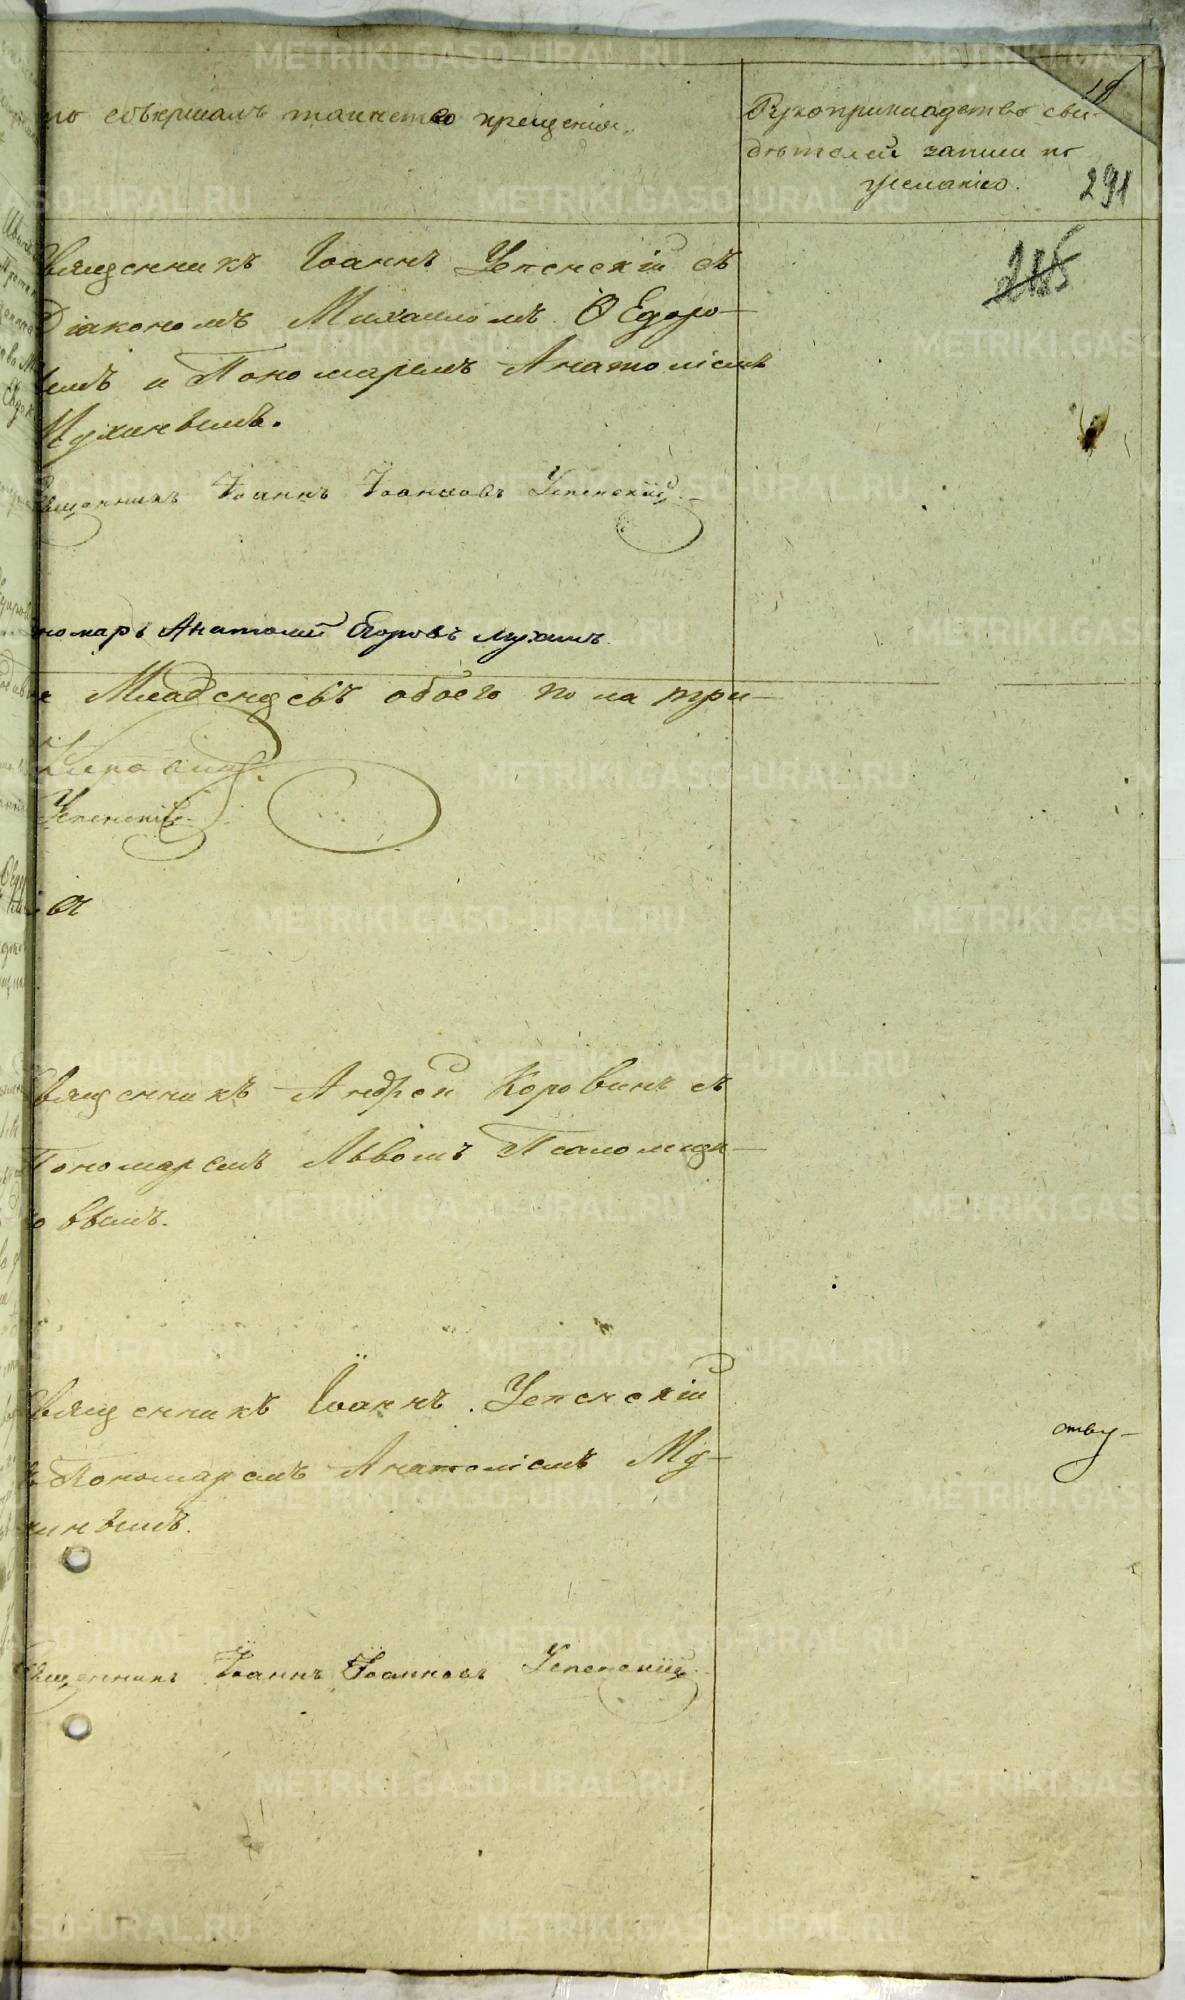 то совершалъ таинство крещенія.
Рукоприкладство сви-
дѣтелей записи по
желанію.
18
291
Священникъ Іоаннъ Успенскій съ
Діакономъ Михаиломъ Ѳедоро-
вымъ и Пономаремъ Анатоліемъ
Мухинымъ.
Священникъ Іоаннъ Іоанновъ Успенскій.
пономарь Анатолий Егоровъ Мухинъ.
Младенцевъ обоего пола три
Успенскій.
Священникъ Андрей Коровинъ съ
Пономаремъ Львомъ Псаломщи-
ковымъ.
Священникъ Іоаннъ Успенскій
съ Пономаремъ Анатоліемъ Му-
хинымъ.
Священникъ Іоаннъ Іоанновъ Успенскій.
METRIKI.GASO-URAL.RU